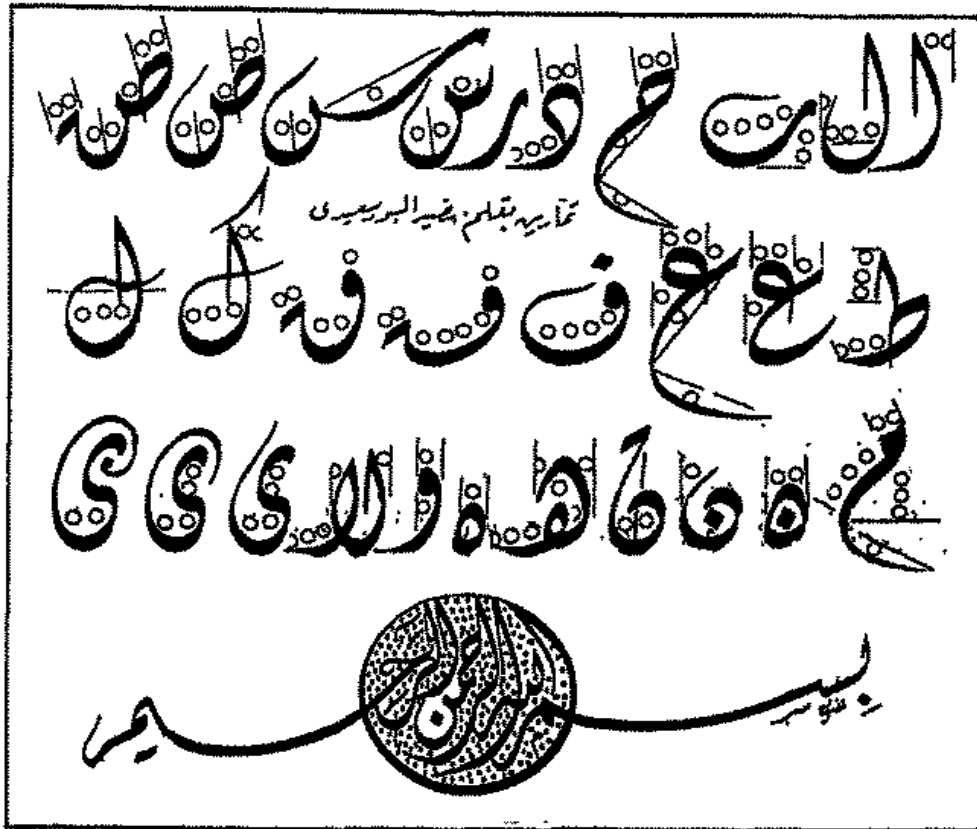 ا ل ب ح د ر س س ص ص
تمارين بقلم: خضير البورسعيدى
ط ع ع ف ف ق ك ل
م ه ه ه ه ه و لا ى ى ى
بسم الله الرحمن الرحيم